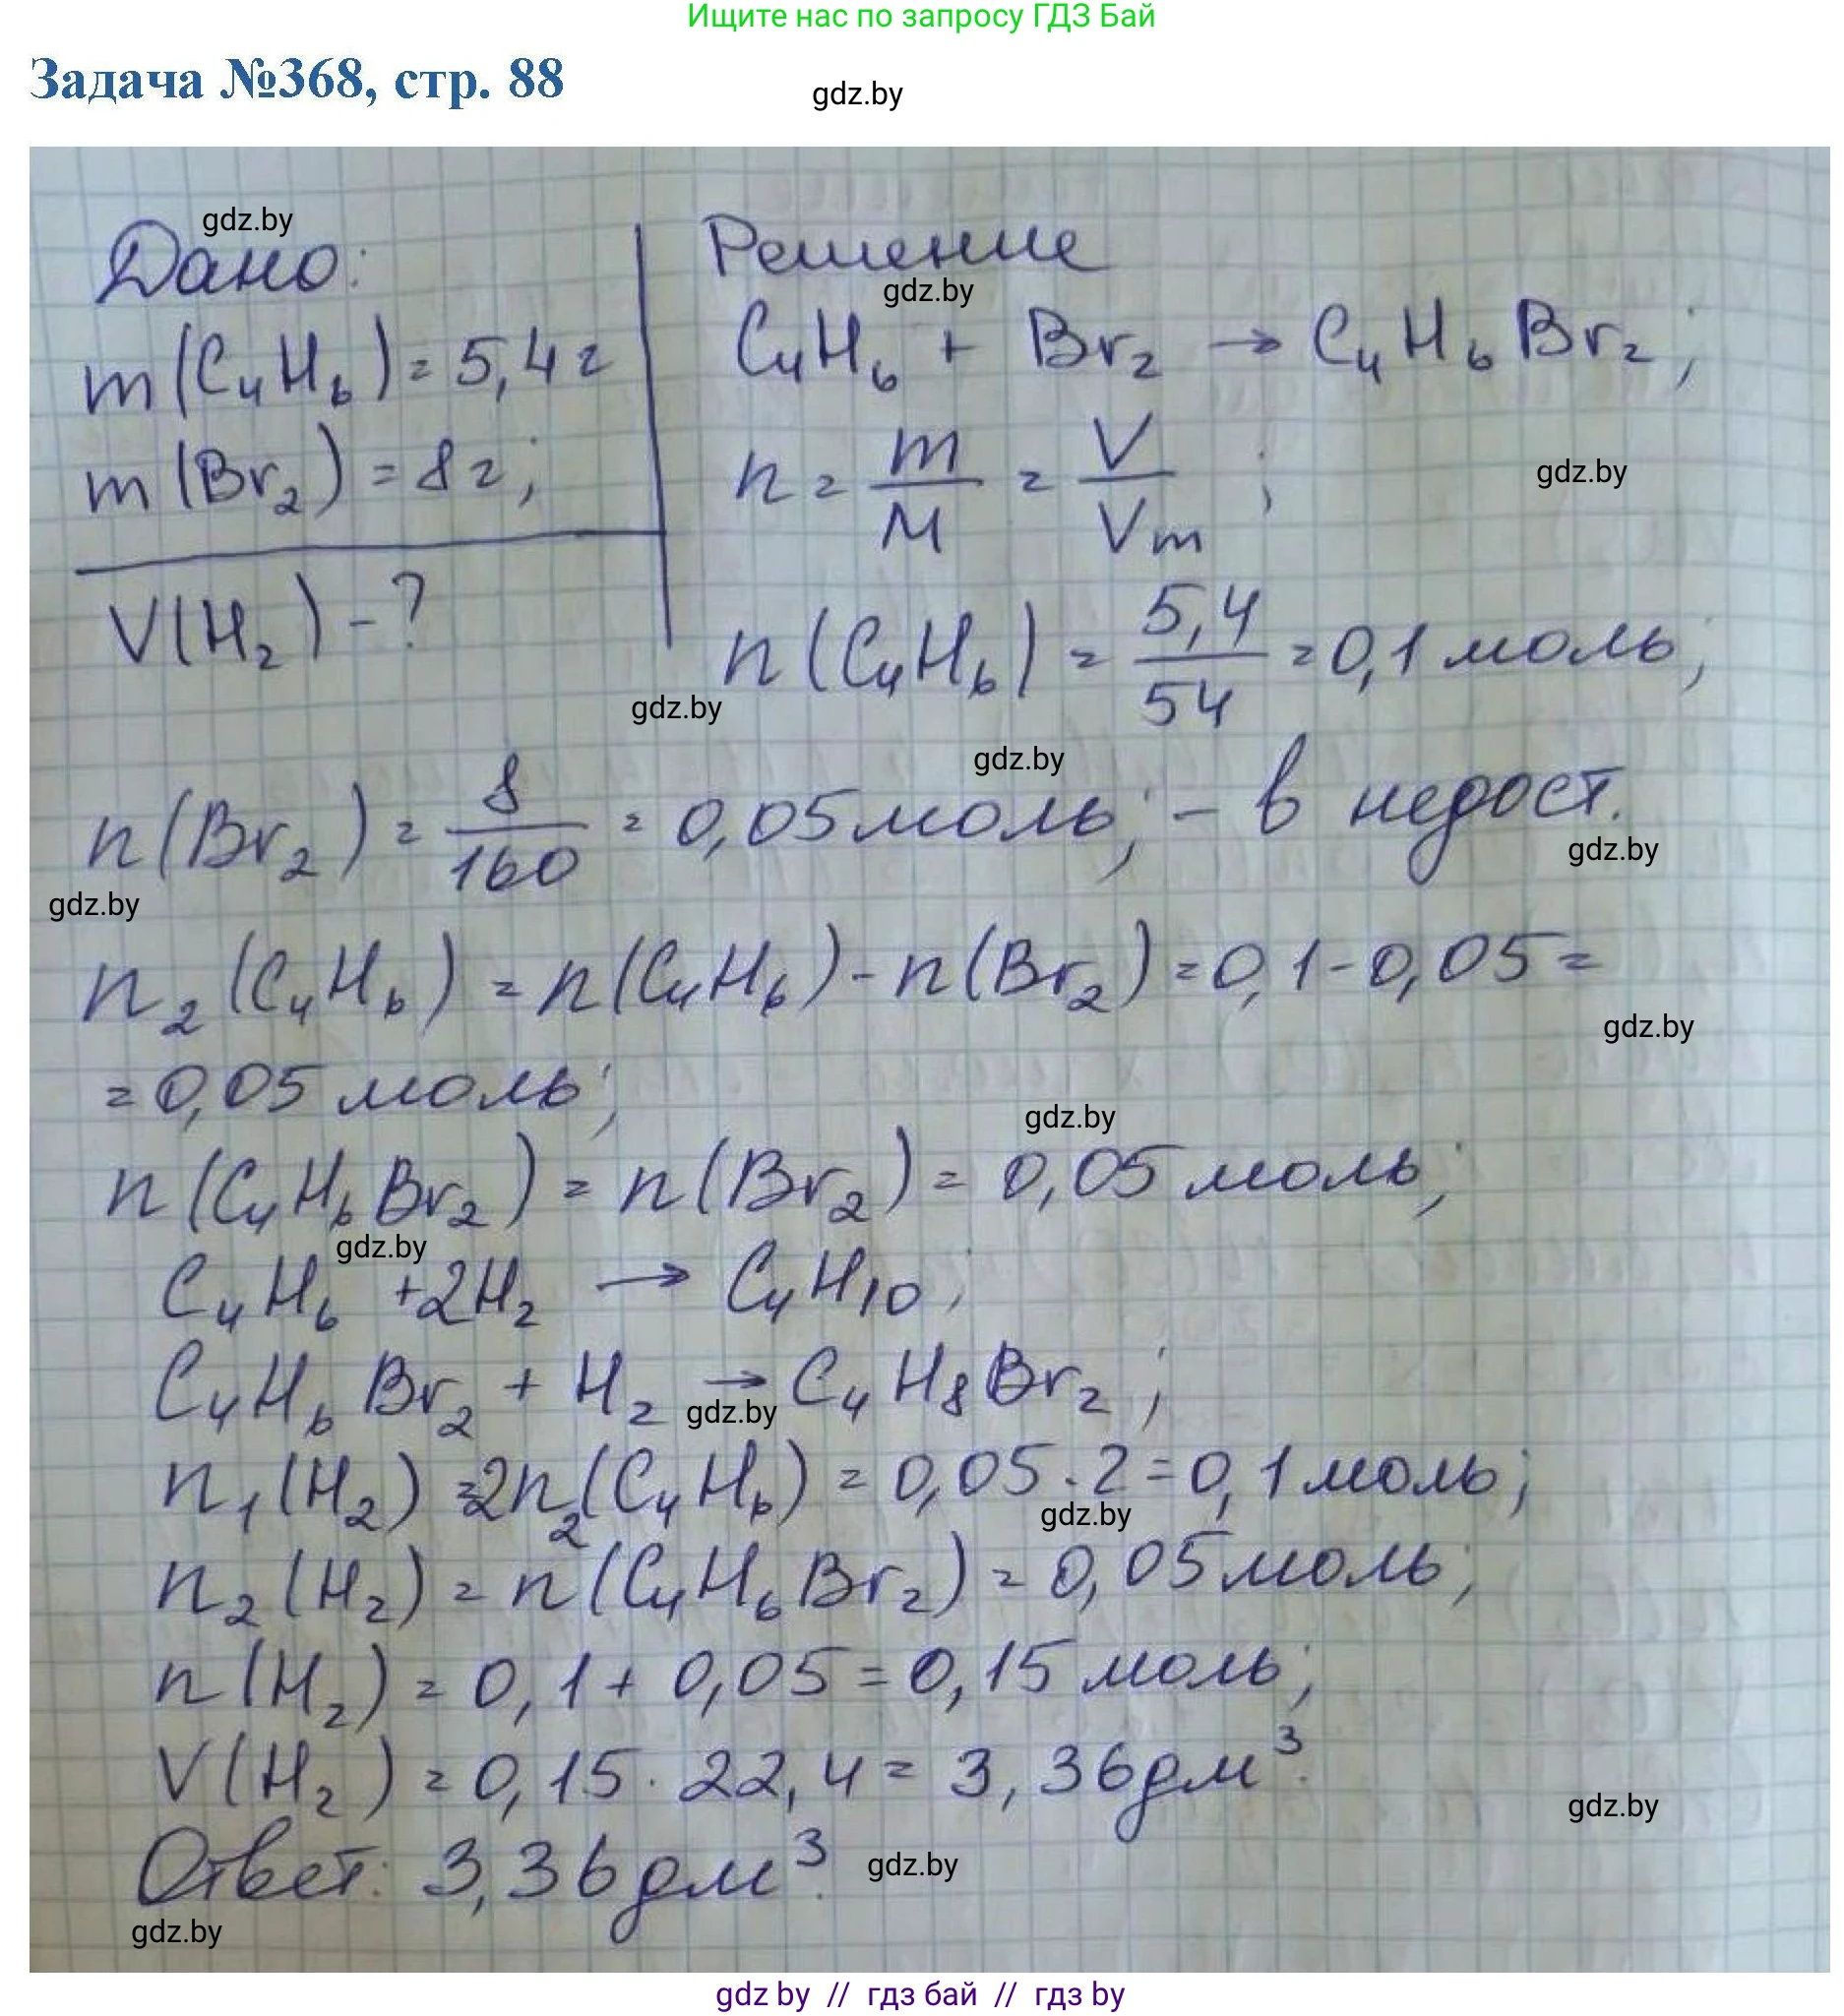 Ищите нас по запросу ГДЗ Бай
Задача №368, стр. 88
gdz.by
gdz.by
Дано:
m(C₄H₆) = 5,4 г
m(Br₂) = 8 г;
V(H₂) - ?
Решение
gdz.by
C₄H₆ + Br₂ → C₄H₆Br₂;
n = m/M = V/Vm;
gdz.by
n(C₄H₆) = 5,4/54 = 0,1 моль;
gdz.by
gdz.by
n(Br₂) = 8/160 = 0,05 моль; - в недост.
gdz.by
gdz.by
n₂(C₄H₆) = n(C₄H₆) - n(Br₂) = 0,1 - 0,05 =
gdz.by
= 0,05 моль;
gdz.by
n(C₄H₆Br₂) = n(Br₂) = 0,05 моль;
gdz.by
C₄H₆ + 2H₂ → C₄H₁₀;
C₄H₆Br₂ + H₂ → C₄H₈Br₂;
gdz.by
n₁(H₂) = 2n₂(C₄H₆) = 0,05 · 2 = 0,1 моль;
gdz.by
n₂(H₂) = n(C₄H₆Br₂) = 0,05 моль;
n(H₂) = 0,1 + 0,05 = 0,15 моль;
V(H₂) = 0,15 · 22,4 = 3,36 дм³.
gdz.by
Ответ: 3,36 дм³.
gdz.by
gdz.by
gdz by // гдз бай // гдз by